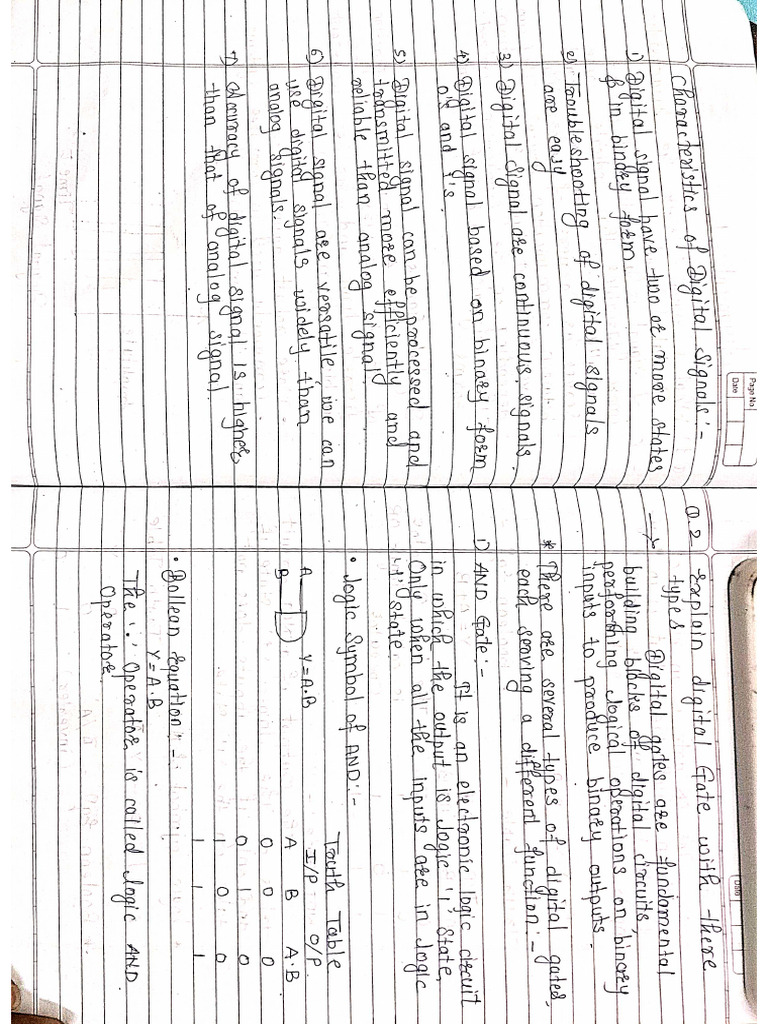 Page No.
Date
Characteristics of Digital Signals :-
1) Digital signal have two or more states
& in binary form.
2) Troubleshooting of digital signals
are easy
3) Digital Signal are continuous signals.
4) Digital signal based on binary form
0's and 1's.
5) Digital signal can be processed and
transmitted more efficiently and
reliable than analog signal
6) Digital signal are versatile, we can
use digital signals widely than
analog signals.
7) Accuracy of digital signal is higher
than that of analog signal.
Date
Q.2 Explain digital Gate with there
types
→ Digital gates are fundamental
building blocks of digital circuits,
performing logical operations on binary
inputs to produce binary outputs.
* There are several types of digital gates,
each serving a different function :-
1) AND Gate :-
It is an electronic logic circuit
in which the output is logic '1' state,
Only when all the inputs are in logic
'1' state.
• Logic Symbol of AND :-
A
B
Y = A·B
Truth Table
I/P O/P
A B A·B
0 0 0
0 1 0
1 0 0
1 1 1
• Bollean Equation :-
Y = A·B
The '·' Operator is called logic AND
Operator.